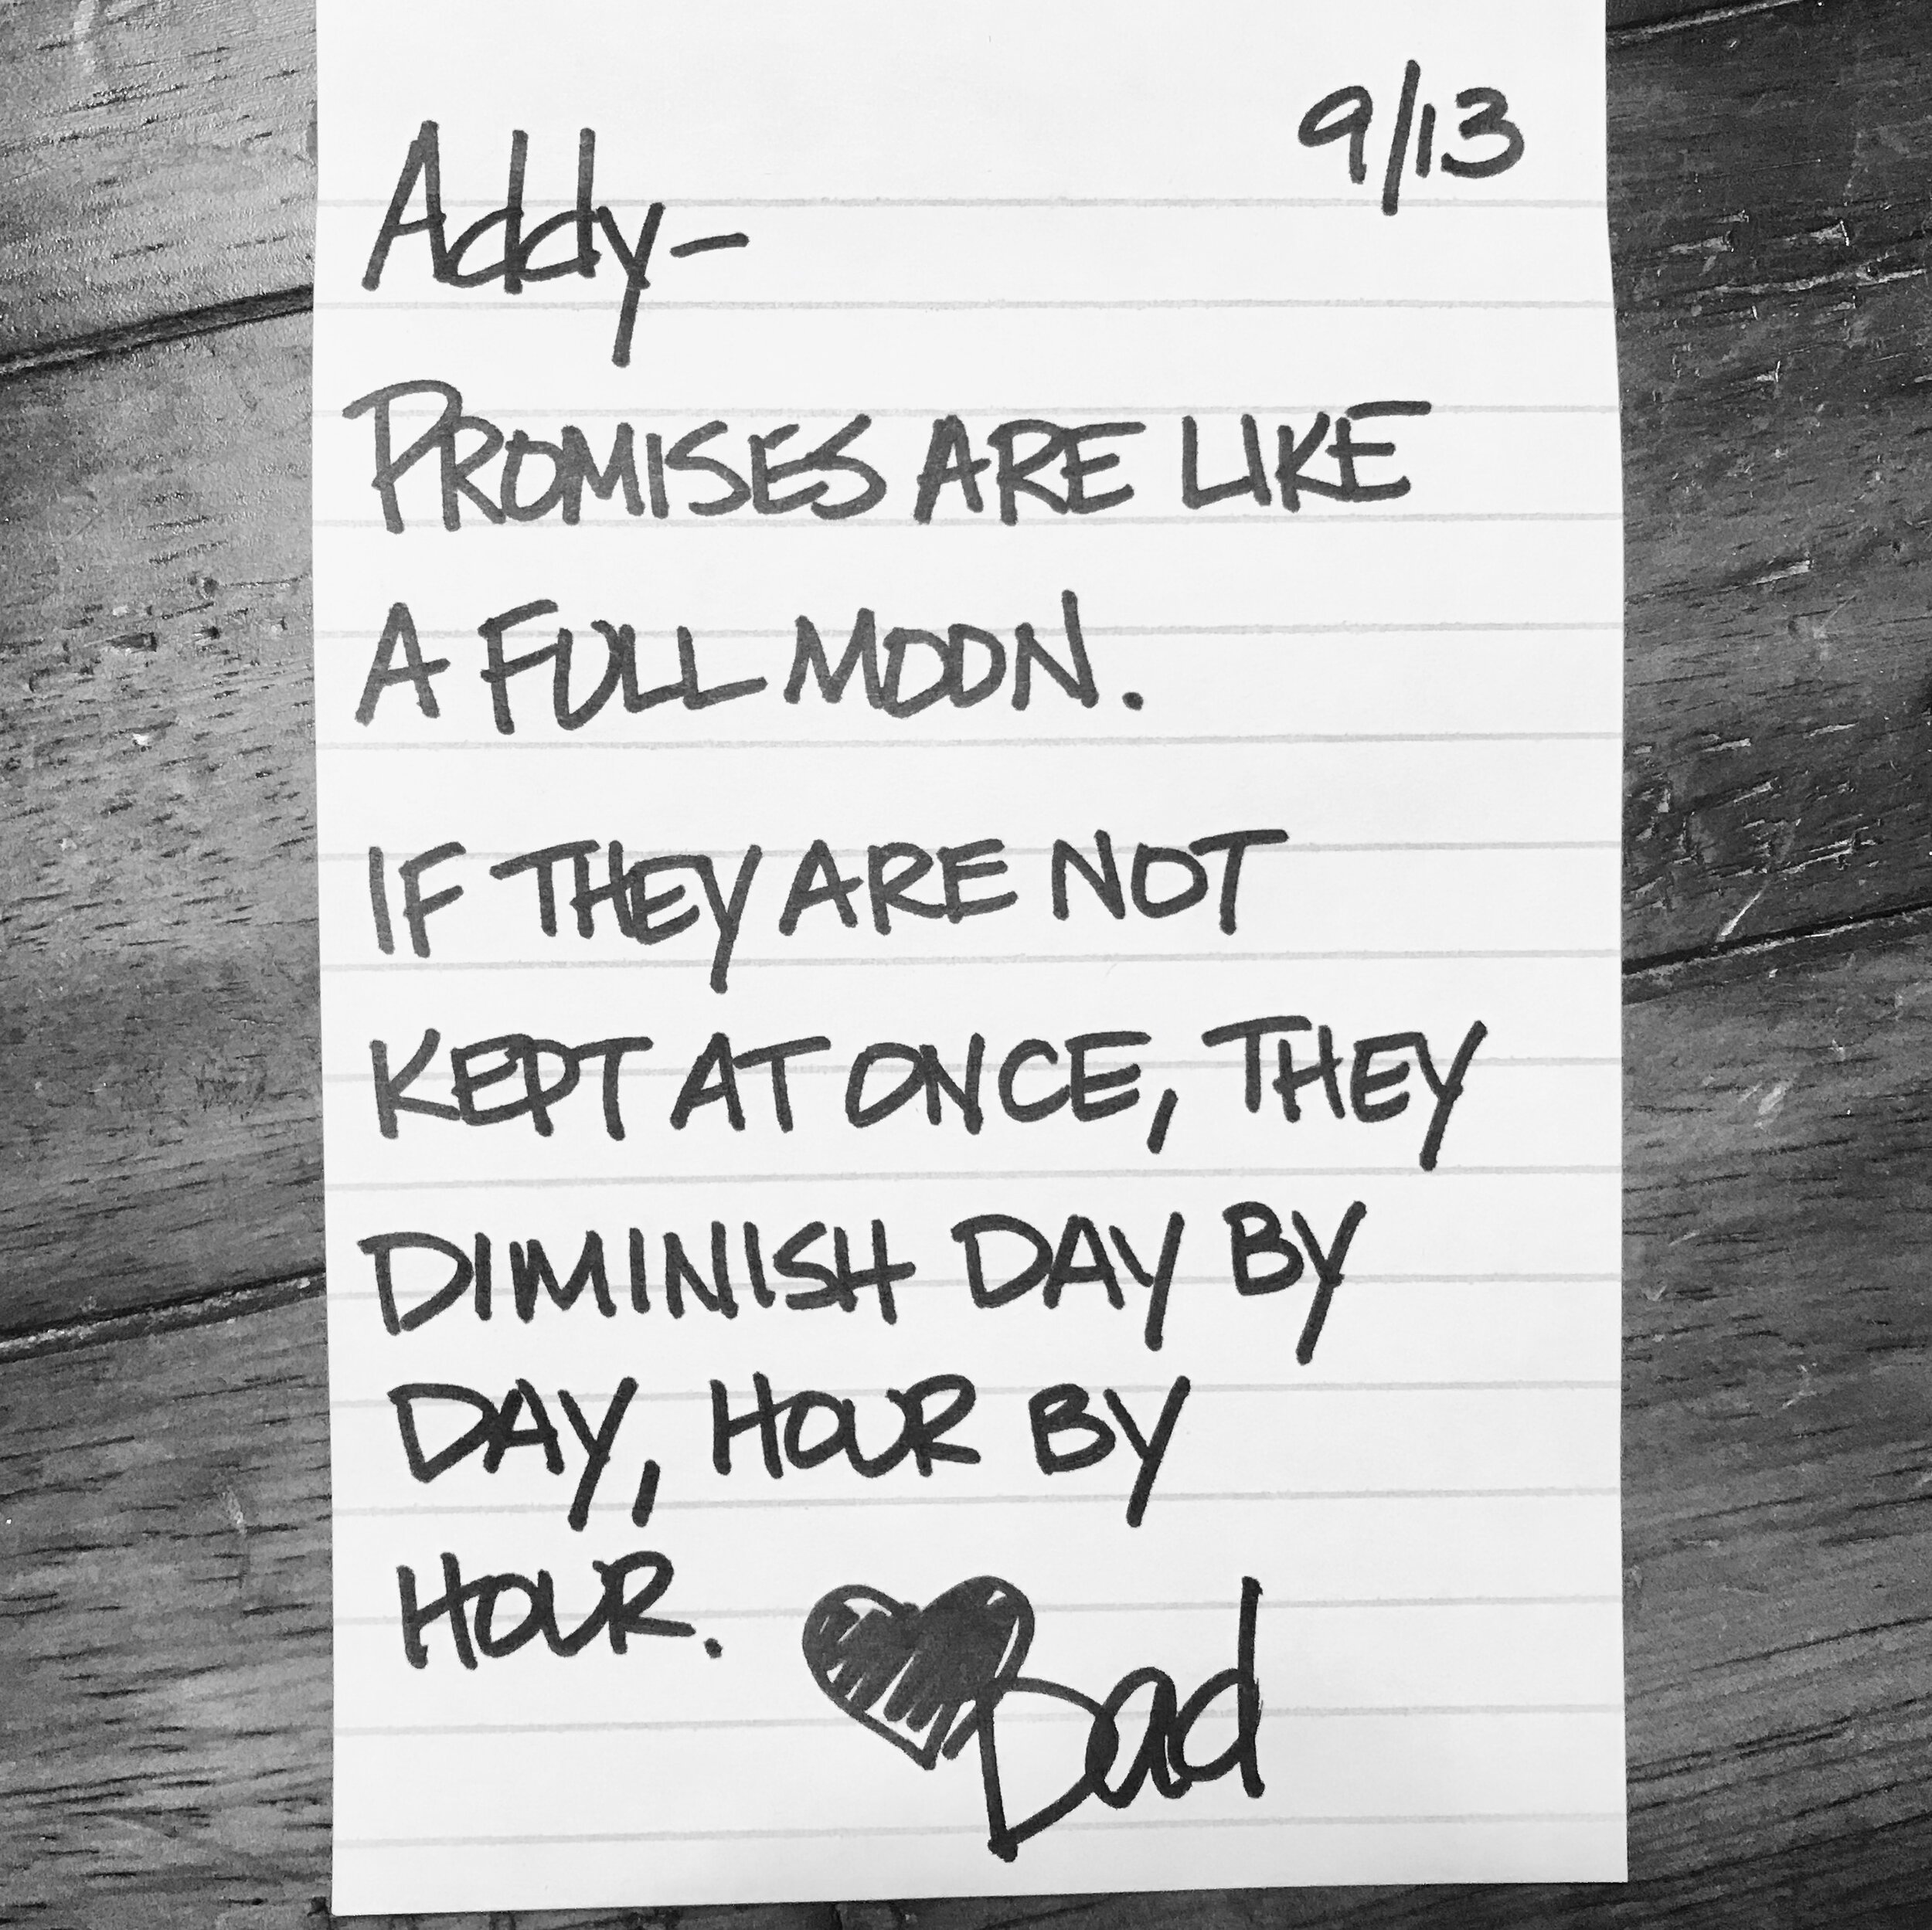 9/13
Addy-
PROMISES ARE LIKE
A FULL MOON.
IF THEY ARE NOT
KEPT AT ONCE, THEY
DIMINISH DAY BY
DAY, HOUR BY
HOUR.
Dad